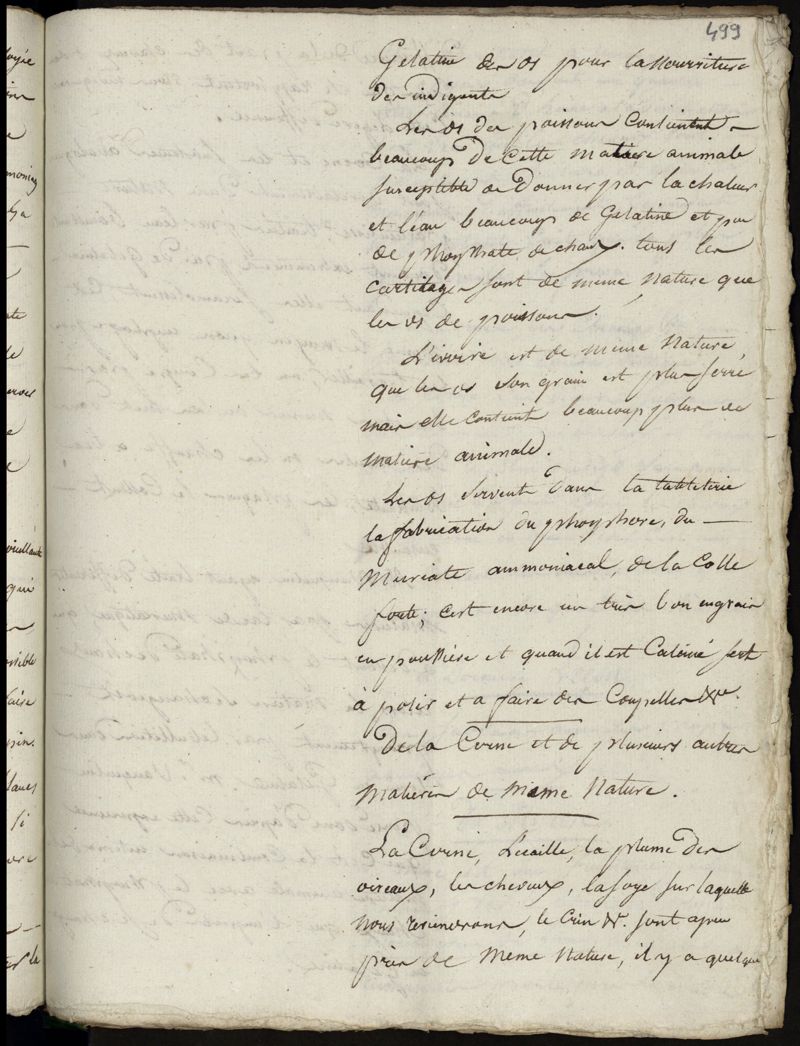 499
Gelatine des os pour la nourriture
des indigents
Les os des poissons contiennent –
beaucoup de cette matiere animale
susceptible de donner par la chaleur
et l'eau beaucoup de Gelatine et peu
de phosphate de chaux. tous les
cartilages sont de meme nature que
les os de poissons.
L'ivoire est de meme nature,
que les os son grain est plus serré
mais elle contient beaucoup plus de
matiere animale.
Les os servent dans la tabletterie
la fabrication du phosphore, du –
Muriate ammoniacal, de la Colle
forte; c'est encore un très bon engrais
en poussiere et quand il est Calciné sert
à polir et a faire des Coupelles &c.
De la Corne et de plusieurs autres
matières de meme Nature.
La Corne, L'ecaille, la plume des
oiseaux, les cheveux, la soye sur laquelle
nous reviendrons, le Crin &c. sont apeu
près de meme Nature, il y a quelque